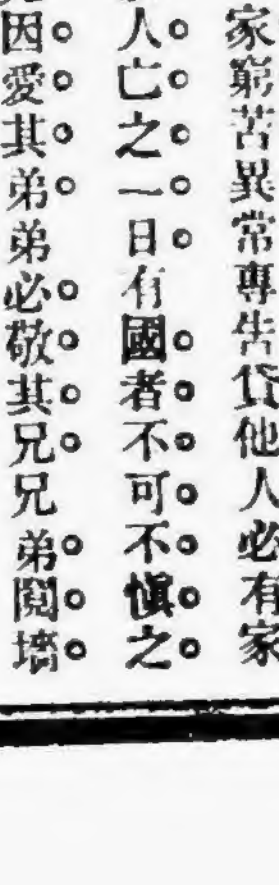 家窮苦異常專告貸他人必有家
人亡之一日有國者不可不愼之
因愛其弟弟必敬其兄兄弟鬩墻